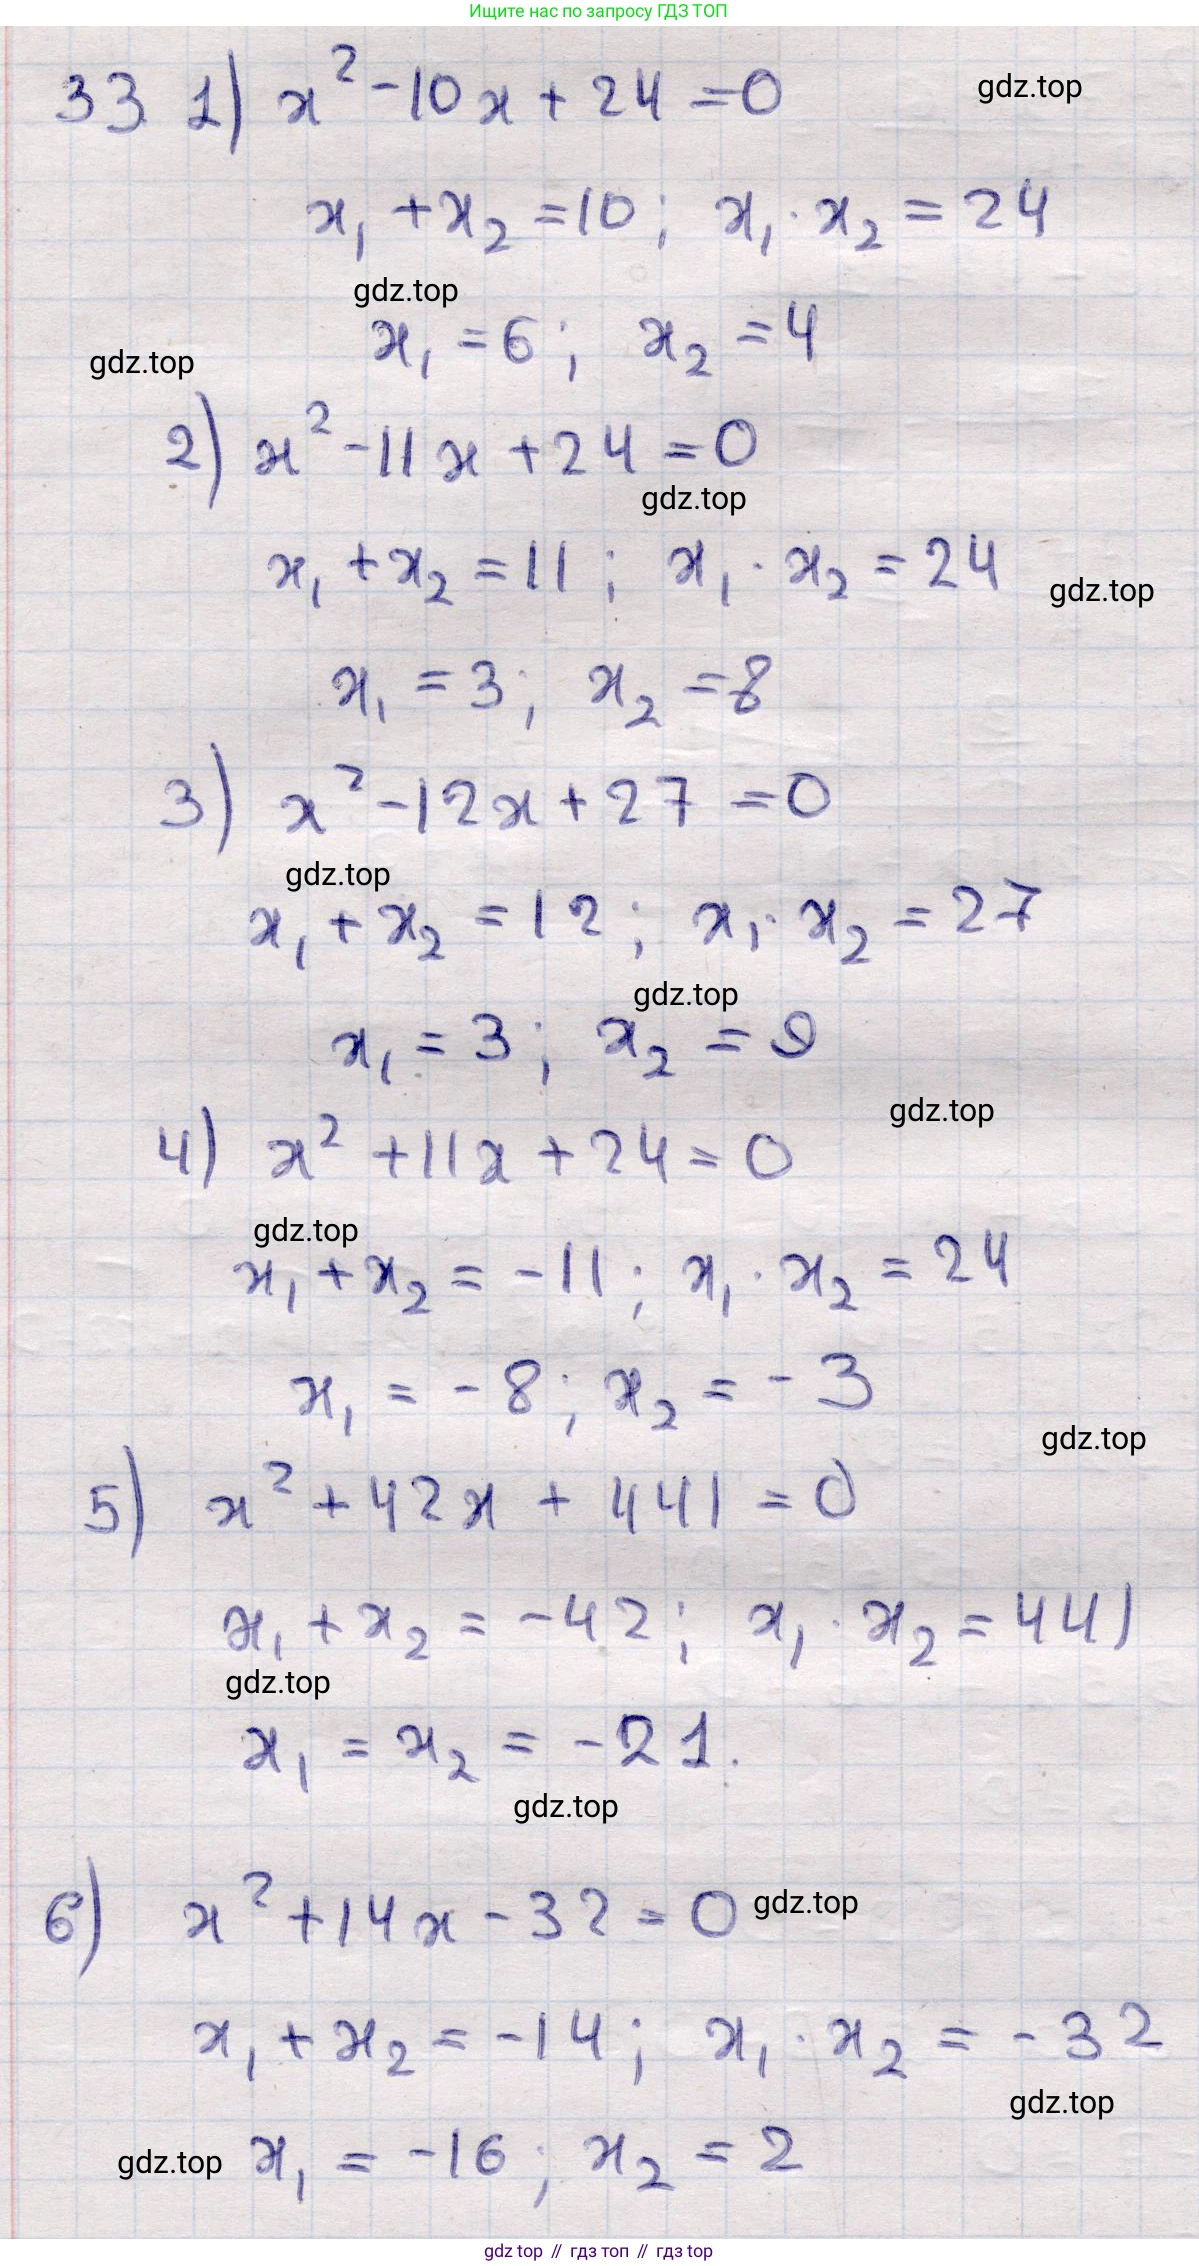 Ищите нас по запросу ГДЗ ТОП
33 1) x² - 10x + 24 = 0
gdz.top
x₁ + x₂ = 10; x₁ · x₂ = 24
gdz.top
x₁ = 6; x₂ = 4
gdz.top
2) x² - 11x + 24 = 0
gdz.top
x₁ + x₂ = 11; x₁ · x₂ = 24
gdz.top
x₁ = 3; x₂ = 8
3) x² - 12x + 27 = 0
gdz.top
x₁ + x₂ = 12; x₁ · x₂ = 27
gdz.top
x₁ = 3; x₂ = 9
gdz.top
4) x² + 11x + 24 = 0
gdz.top
x₁ + x₂ = -11; x₁ · x₂ = 24
x₁ = -8; x₂ = -3
gdz.top
5) x² + 42x + 441 = 0
x₁ + x₂ = -42; x₁ · x₂ = 441
gdz.top
x₁ = x₂ = -21.
gdz.top
6) x² + 14x - 32 = 0
gdz.top
x₁ + x₂ = -14; x₁ · x₂ = -32
gdz.top
gdz.top
x₁ = -16; x₂ = 2
gdz top // гдз топ // гдз top